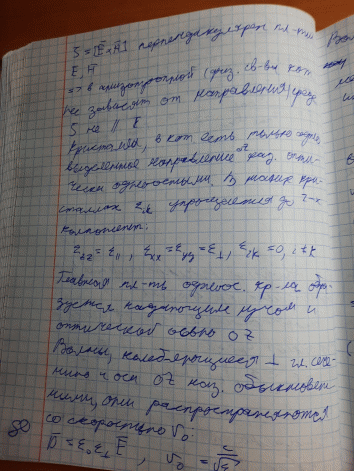 S = [E × H] перпендикулярен пл-ти
E, H
=> в анизотропной (физ. св-ва кот
не зависят от направления) сред
S не || E
Кристаллы, в кот. есть только одно
выделенное направление OZ наз. опти-
чески одноосными. В таких кри-
сталлах ε_ik упрощается до 2-х
компонент:
ε_zz = ε_||, ε_xx = ε_yy = ε_⊥, ε_ik = 0, i ≠ k
Главная пл-ть одноос. кр-ла обр-
зуется падающим лучом и
оптической осью OZ
Волны, колеблющиеся ⊥ гл. сече-
нию
оси OZ наз. обыкновен
ными, они распространяются
со скоростью v₀.
D = ε₀ε_⊥E, v₀ = c/√ε